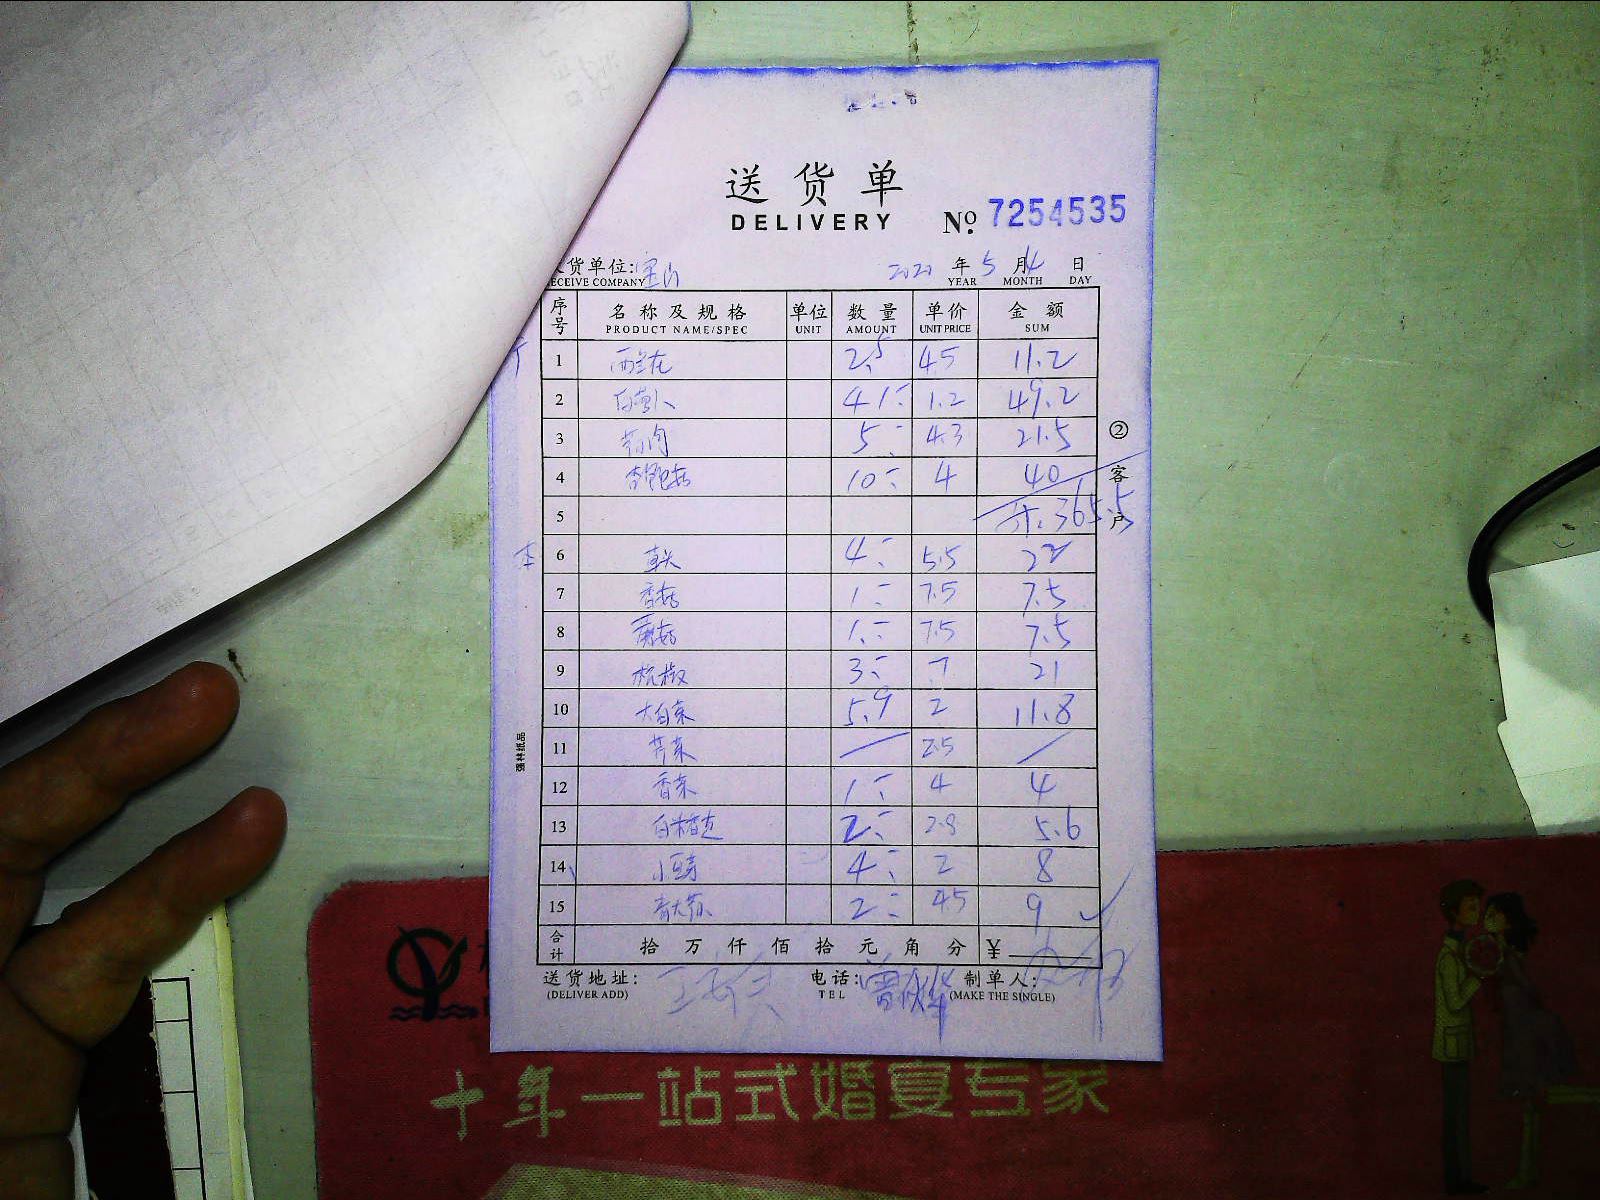 送货单
DELIVERY
No. 7254535
货单位:
ECEIVE COMPANY
2021 年 5 月 4 日
YEAR MONTH DAY
序号 名称及规格 单位 数量 单价 金额
PRODUCT NAME/SPEC UNIT AMOUNT UNIT PRICE SUM
1 西兰花 2.5 4.5 11.2
2 白萝卜 41 1.2 49.2
3 5 4.3 21.5
4 杏鲍菇 10 4 40
5 365.5
6 4 5.5 22
7 香菇 1 7.5 7.5
8 蘑菇 1 7.5 7.5
9 杭椒 3 7 21
10 大白菜 5.9 2 11.8
11 芹菜 2.5
12 香菜 1 4 4
13 2 2.8 5.6
14 4 2 8
15 2 4.5 9
合计 拾 万 仟 佰 拾 元 角 分 ¥
送货地址: 电话: 制单人:
(DELIVER ADD) TEL (MAKE THE SINGLE)
② 客户
强林纸品
十年一站式婚宴专家